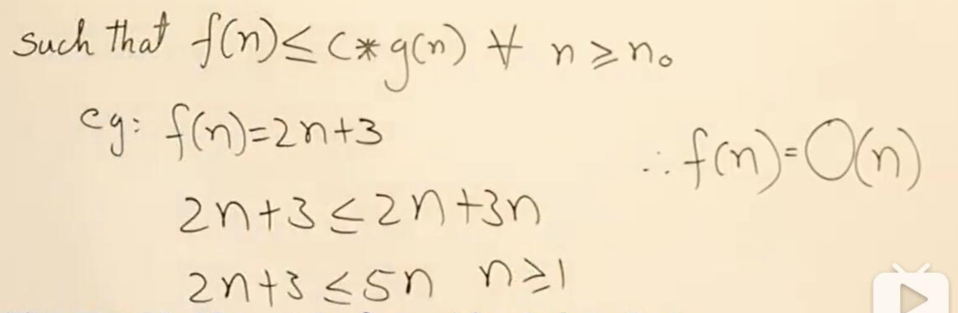 such that f(n) ≤ c * g(n) ∀ n ≥ n₀
eg: f(n)=2n+3
∴ f(n)=O(n)
2n+3 ≤ 2n+3n
2n+3 ≤ 5n n ≥ 1